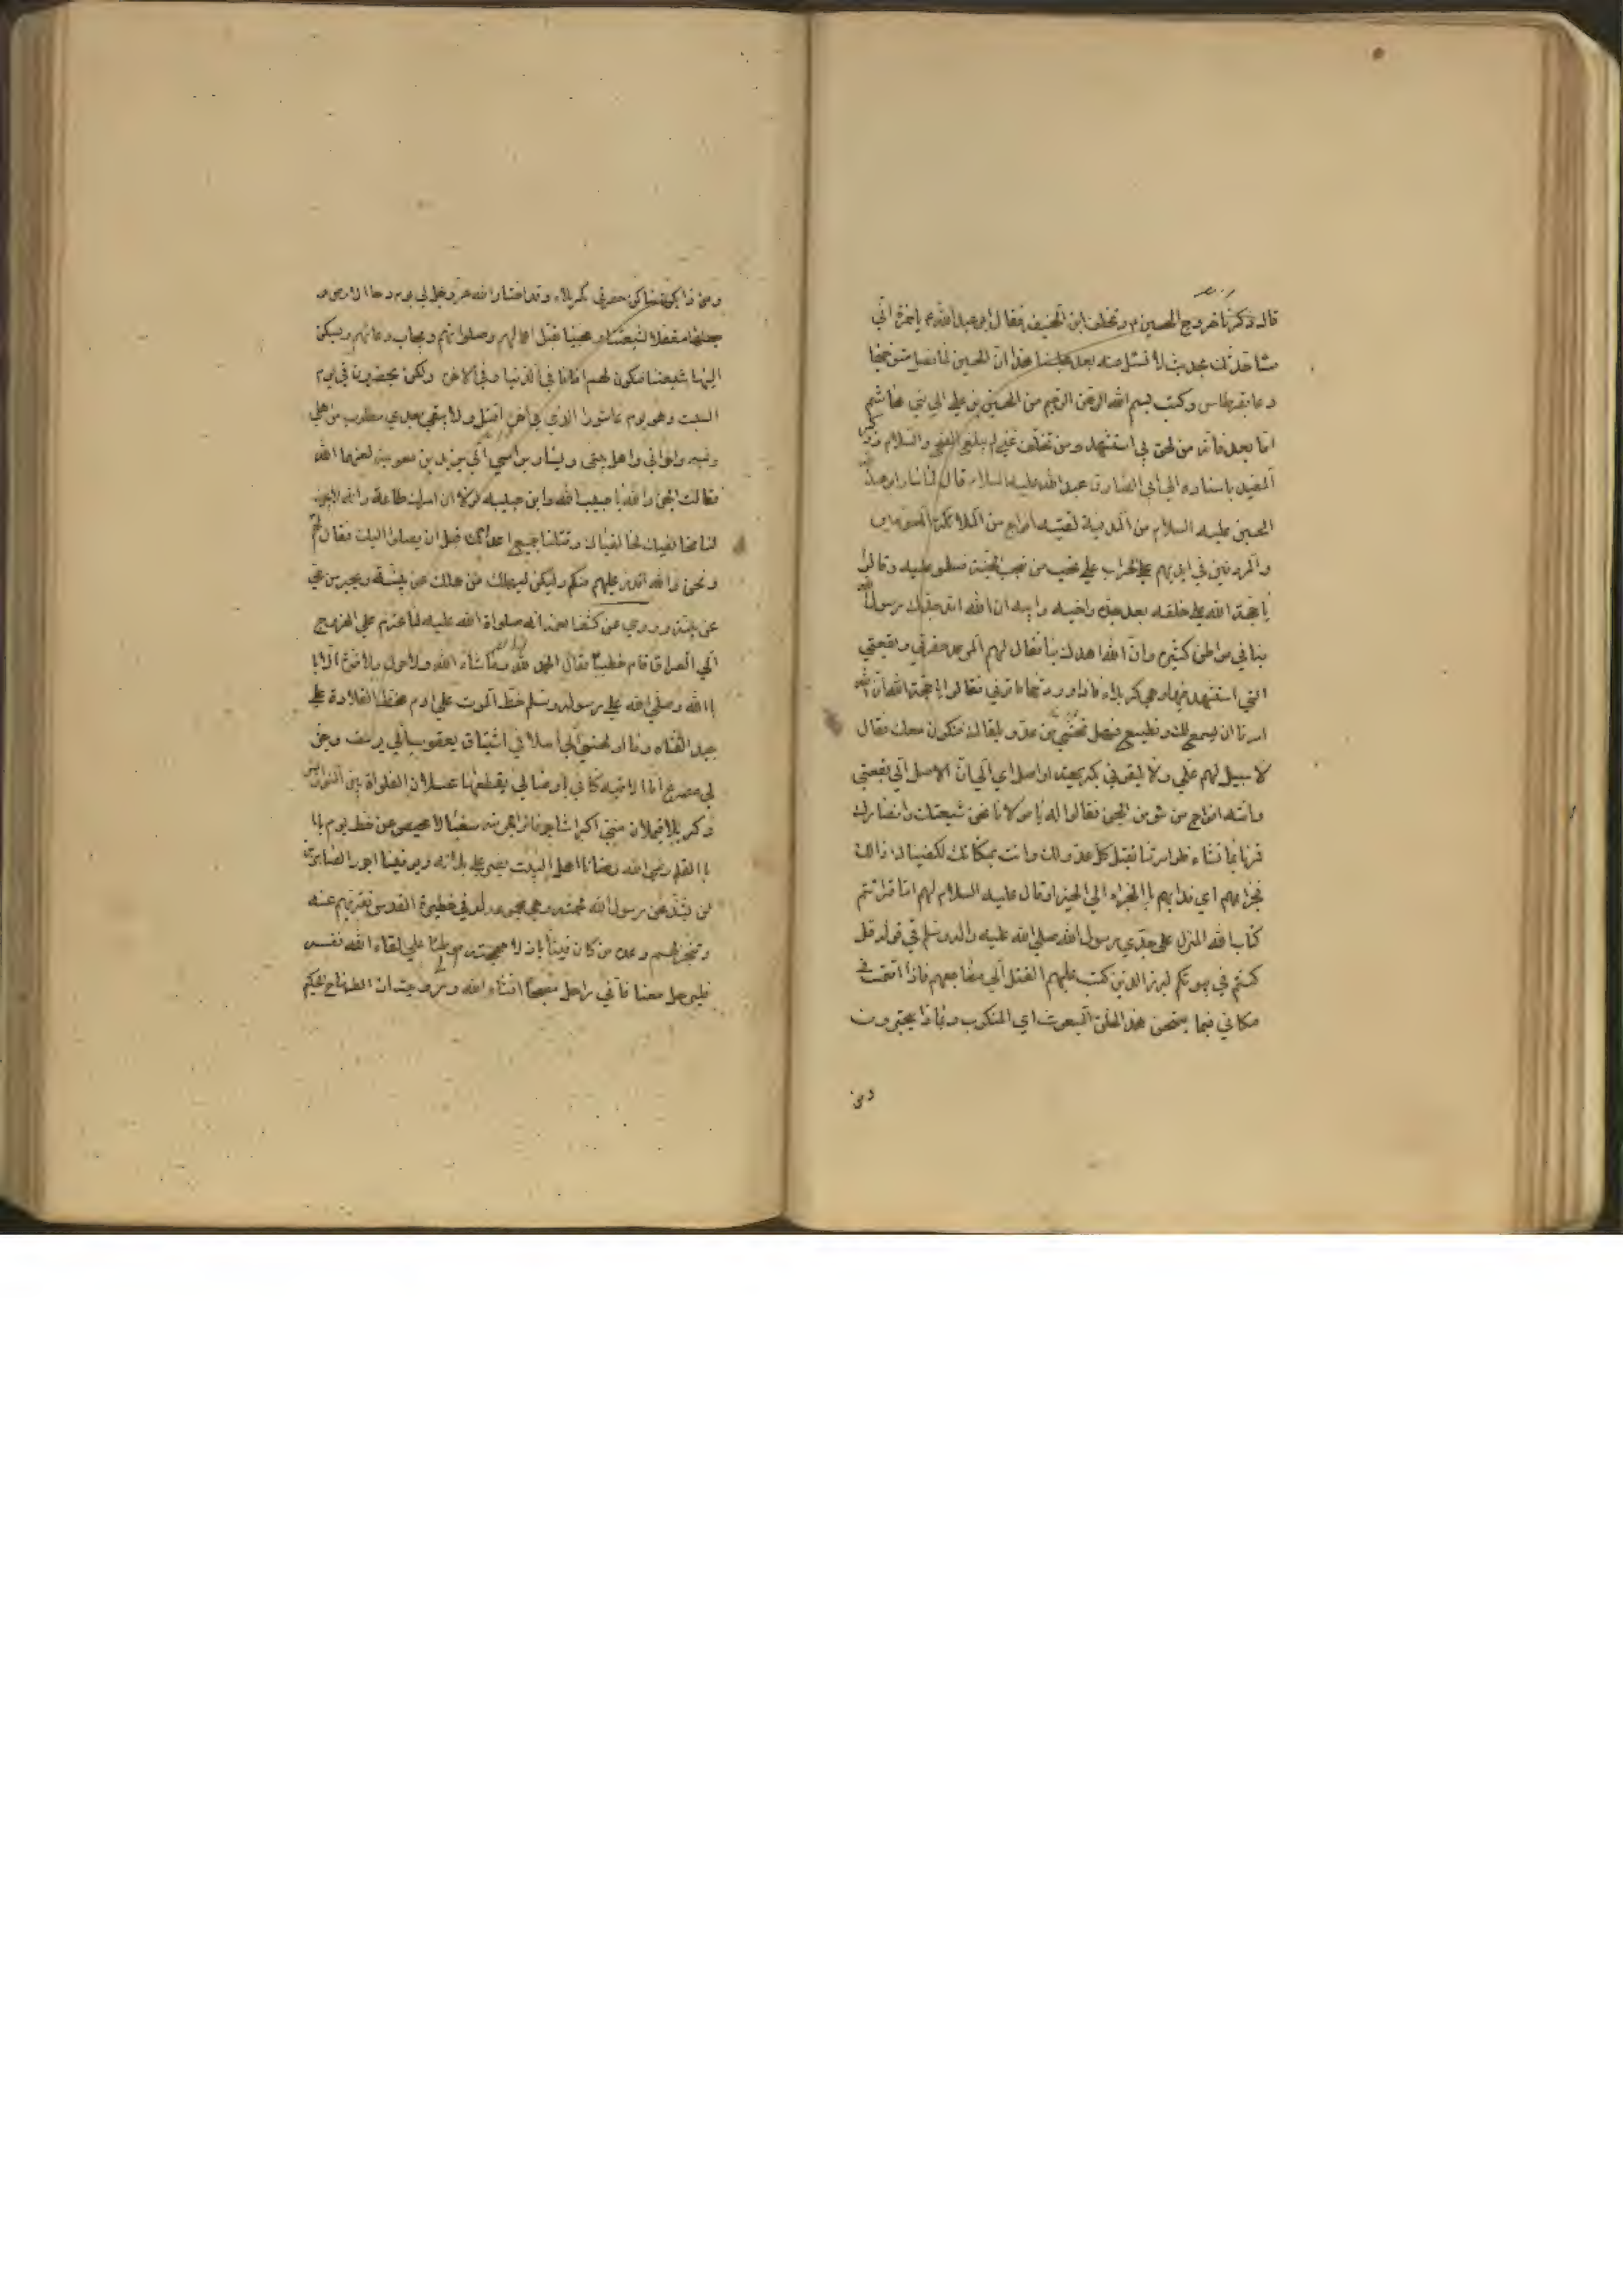 قال ذكرنا خروج الحسين ع وتخلف ابن الحنفيه فقال ابو عبد الله ع يا حمزة اني
ساحدثك بحديث لا تسئل عنه بعد مجلسنا هذا ان الحسين لما فصل متوجها
دعا بقرطاس وكتب بسم الله الرحمن الرحيم من الحسين بن علي الي بني هاشم
اما بعد فانه من لحق بي استشهد ومن تخلف عني لم يبلغ الفتح والسلام وذكر
المفيد باسناده الي ابي الصادق عبد الله عليه السلام قال لما سار ابو عبد الله
الحسين عليه السلام من المدينة لقيته افواج من الملائكة المسومين
والمردفين في ايديهم الحراب علي نجب من نجب الجنة فسلمو عليه وقالوا
يا حجة الله علي خلقه بعد جده واخيه وابيه ان الله امد جدك رسول الله
بنا في مواطن كثيره وان الله امدك بنا فقال لهم الموعد حفرتي وبقعتي
التي استشهد فيها وهي كربلاء فاذا وردتها فاتوني فقالوا يا حجة الله ان الله
امرنا ان نسمع لك ونطيع فهل تخشي من عدو يلقاك فنكون معك فقال
لا سبيل لهم علي ولا يلقوني بكريهة او اصل اي الي ان الاصل الي بقعتي
واتته افواج من مومن الجن فقالوا له يا مولانا نحن شيعتك وانصارك
فمرنا بما تشاء فلو امرتنا بقتل كل عدو لك وانت بمكانك لكفيناك ذالك
فجزاهم اي فدا بهم با الجزاء الي الخير وقال عليه السلام لهم اما قراتتم
كتاب الله المنزل علي جدي رسول الله صلي الله عليه واله وسلم في قوله قل
كنتم في بيوتكم لبرز الذين كتب عليهم القتل الي مضاجعهم فاذا اقمت في
مكاني فبما يمتحن هذ الخلق المتعوس اي المنكوب وبماذا يختبرون
ومن
ومن ذا يكون ساكن حفرتي بكربلاء وقد اختار الله عز وجل لي يوم دحا الارض و
جعلها معقلا لشيعتنا ومحبينا تقبل اعمالهم وصلواتهم ويجاب دعائهم ويسكن
اليها شيعتنا فتكون لهم امانا في الدنيا وفي الاخره ولكن تحضرون في يوم
السبت وهو يوم عاشورا الذي في اخره اقتل ولا يبقي بعدي مطلوب من اهلي
ونسبي واخواني واهل بيتي ويسار براسي الي يزيد بن معوية لعنهما الله
فقالت الجن والله يا حبيب الله وابن حبيبه لولا ان امرك طاعة وانه لا يجوز
لنا مخالفتك لخالفناك وقتلنا جميع اعدائك قبل ان يصلوا اليك فقال لهم
ونحن والله اقدر عليهم منكم وليكن ليهلك من هلك عن بينة ويحيي من حي
عن بينة وروي عن كشف الغمة انه صلواة الله عليه لما عزم علي الخروج
الي العراق قام خطيبا فقال الحمد لله وماشاء الله ولا حول ولا قوة الا با
با الله وصلي الله علي رسوله وسلم خط الموت علي ادم مخط القلادة علي
جيد الفتاه وما اولهني الي اسلافي اشتياق يعقوب الي يوسف وخير
لي مصرع انا لاقيه كاني باوصالي يقطعها عسلان الفلواة بين النواويس
وكربلا فيملان مني اكراشا جوفا واجربة سغبا لا محيص عن خط يوم با
با القلم رضي الله رضانا اهل البيت نصبر علي بلائه ويوفينا اجور الصابرين
لن تشذ عن رسول الله لحمته وهي مجموعة له في حظيرة القدس تقر بهم عينه
وتنجز لهم وعده من كان فينا باذلا مهجته موطنا علي لقاء الله نفسه
فليرحل معنا فاني راحل مصبحا انشاء الله و